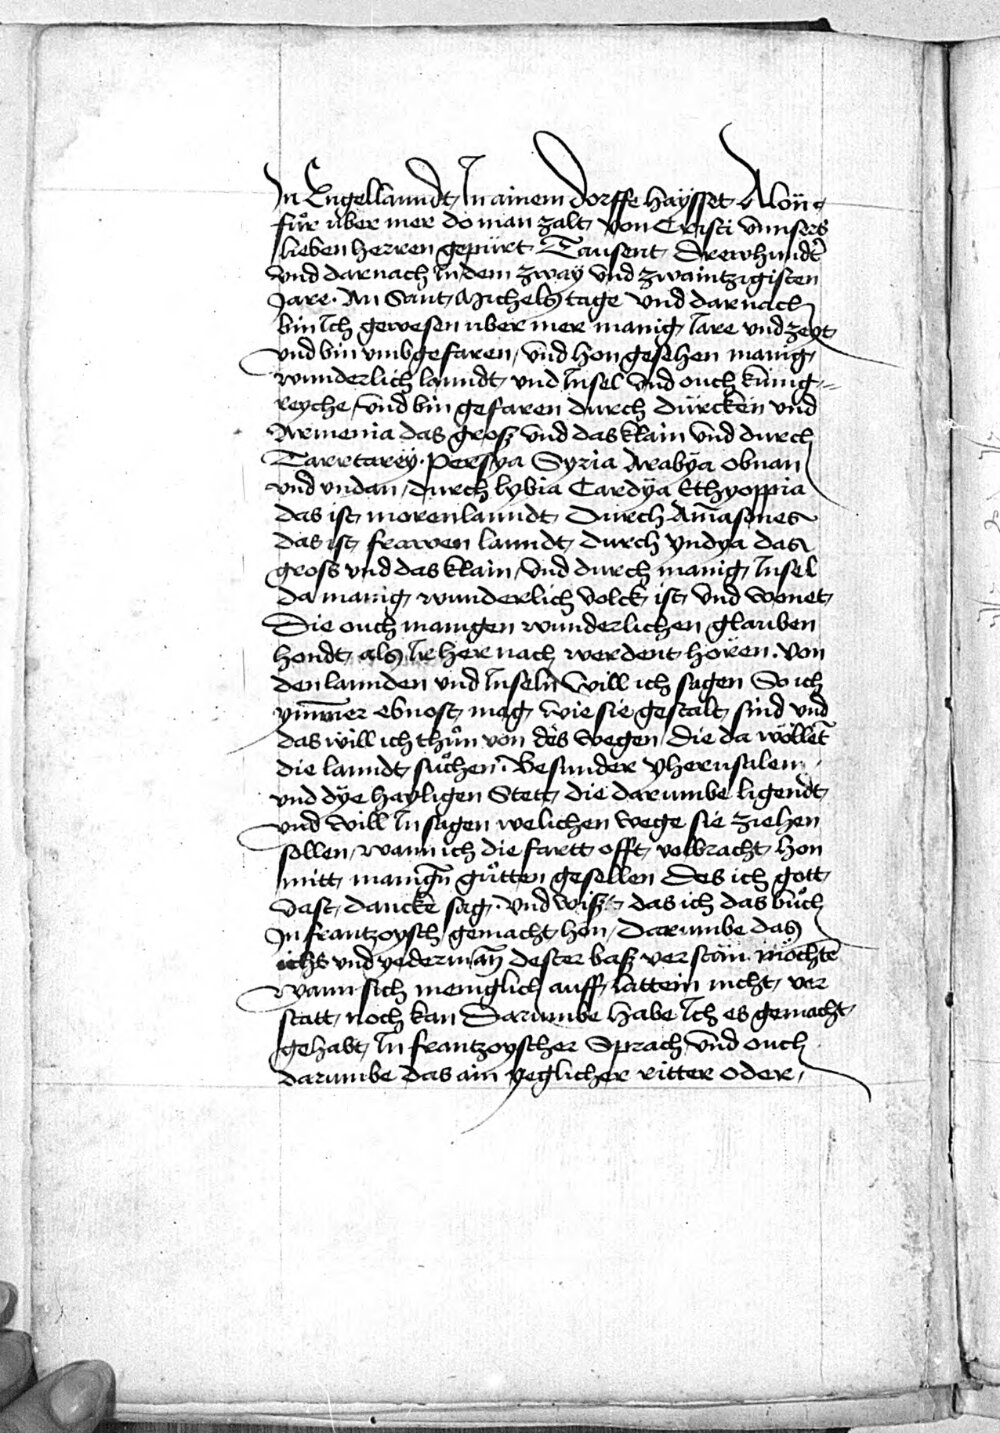 In Engellanndt, In ainem dorffe haÿsset Aloÿ-
fuͦr uber mer do man zalt, von Cristi vnnsers
lieben herren gepürt Tausent, drewhundt
vnd darnach In dem zwaÿ vnd zwaintzigisten
Jare. An Sant, Michels tage vnd darnach
bin Ich gewesen uber mer manig, Jare vnd zeyt
vnd bin vmbgefaren, vnd hon gesehen manig,
wunderlich lanndt, vnd Insel vnd ouch künig-
reyche, vnd bin gefaren durch dürcken vnd
Armenia das groß vnd das klain vnd durch
Tarrtareÿ. Persya Syria Arabÿa obnan
vnd vndan, durch lybia Cardÿa Ethyoppia
das ist, morenlanndt, Durch Amasones
das ist, frawen lanndt, durch yndya das
gross vnd das klain, vnd durch manig, Insel
da manig, wunderlich volck, ist, vnd wonet,
Die ouch manigen wunderlichen glauben
hondt, als Ir her nach werdent hören. von
den lannden vnd Inseln will ich sagen So ich
ymmer ebnost, mag, wie sie gestalt, sind vnd
das will ich thuͦn von des wegen die da wöllet
die lanndt, suͦchen. Besunder yherusalem
vnd dÿe hayligen Stett, die darumbe ligendt,
vnd will In sagen welichen wege sie ziehen
sollen, wann ich die fartt offt, volbracht, hon
mitt, manign guͦtten gesellen Des ich gott,
vast, dancke sag. vnd wiß, das ich das buͦch
In frantzoysch gemacht, hon, Darumbe das
ichs vnd yederman dester baß verstän möchte
wann sich meniglich auff, lattein nicht, ver
statt, noch kan Darumbe habe Ich es gemacht,
gehabt, In frantzoyscher Sprach, vnd ouch
darumbe das ain yeglicher ritter oder,